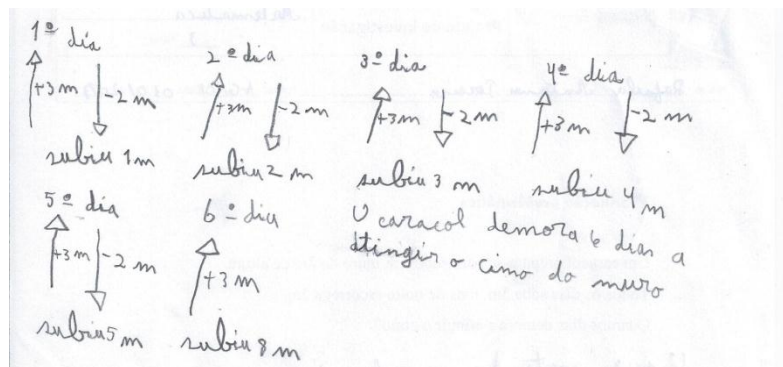 1º dia
+3m -2m
subiu 1m
2º dia
+3m -2m
subiu 2 m
3º dia
+3m -2m
subiu 3 m
4º dia
+3m -2 m
subiu 4 m
5º dia
+3m -2 m
subiu 5 m
6º dia
+3m
subiu 8 m
O caracol demora 6 dias a
atingir o cimo do muro